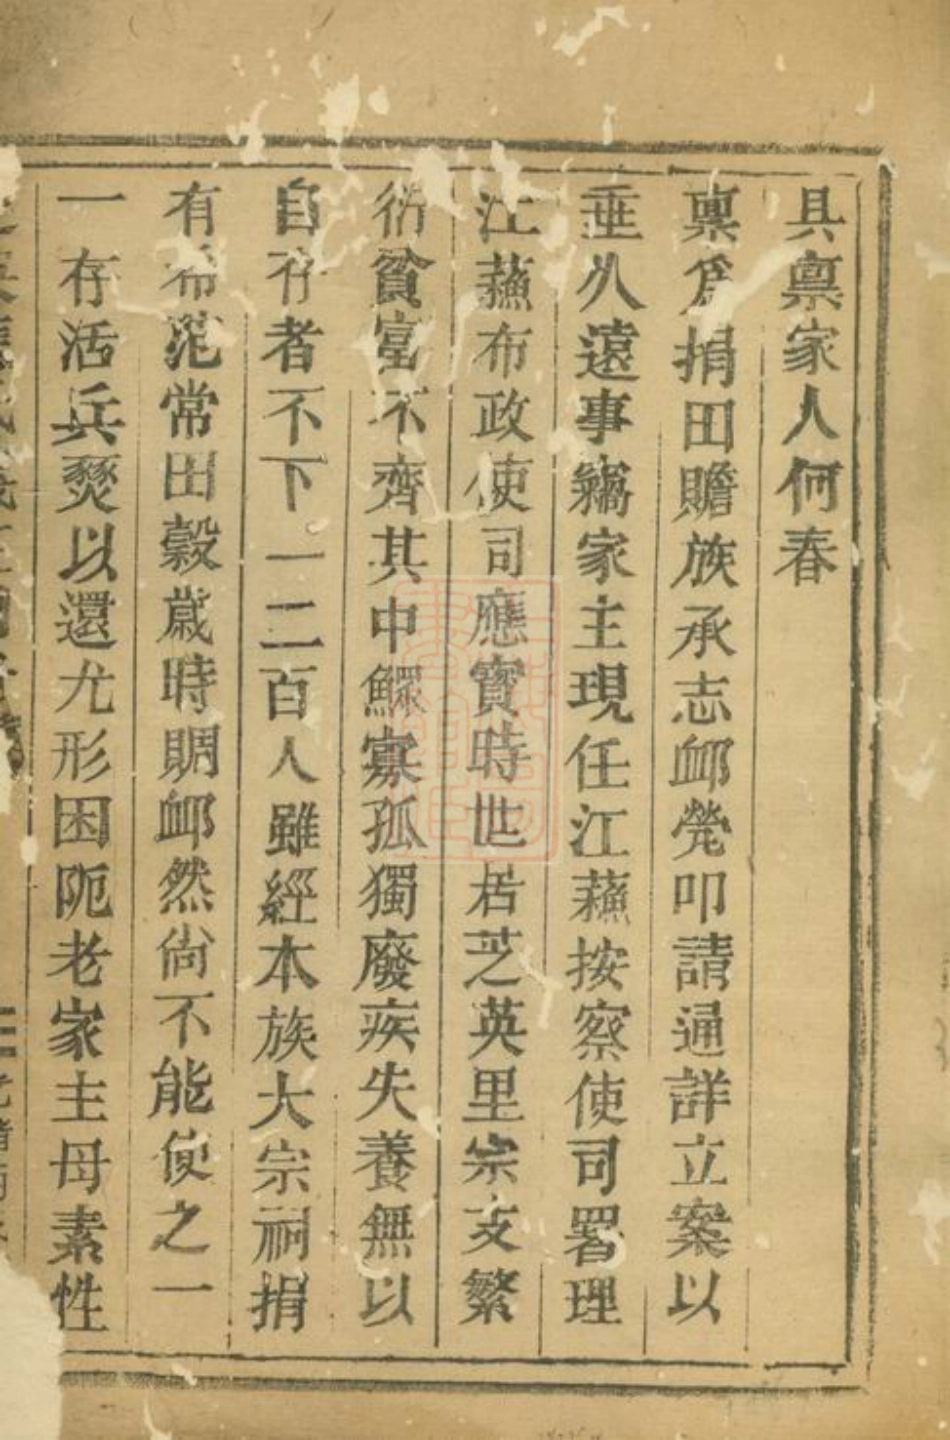 具禀家人何春
禀爲捐田贍族承志䘏煢叩請通詳立案以
垂久遠事竊家主現任江蘇按察使司署理
江蘇布政使司應寶時世居芝英里宗支繁
衍貧富不齊其中鰥寡孤獨廢疾失養無以
自存者不下一二百人雖經本族大宗祠捐
有希範常田穀歲時賙䘏然尙不能使之一
一存活兵燹以還尤形困阨老家主母素性